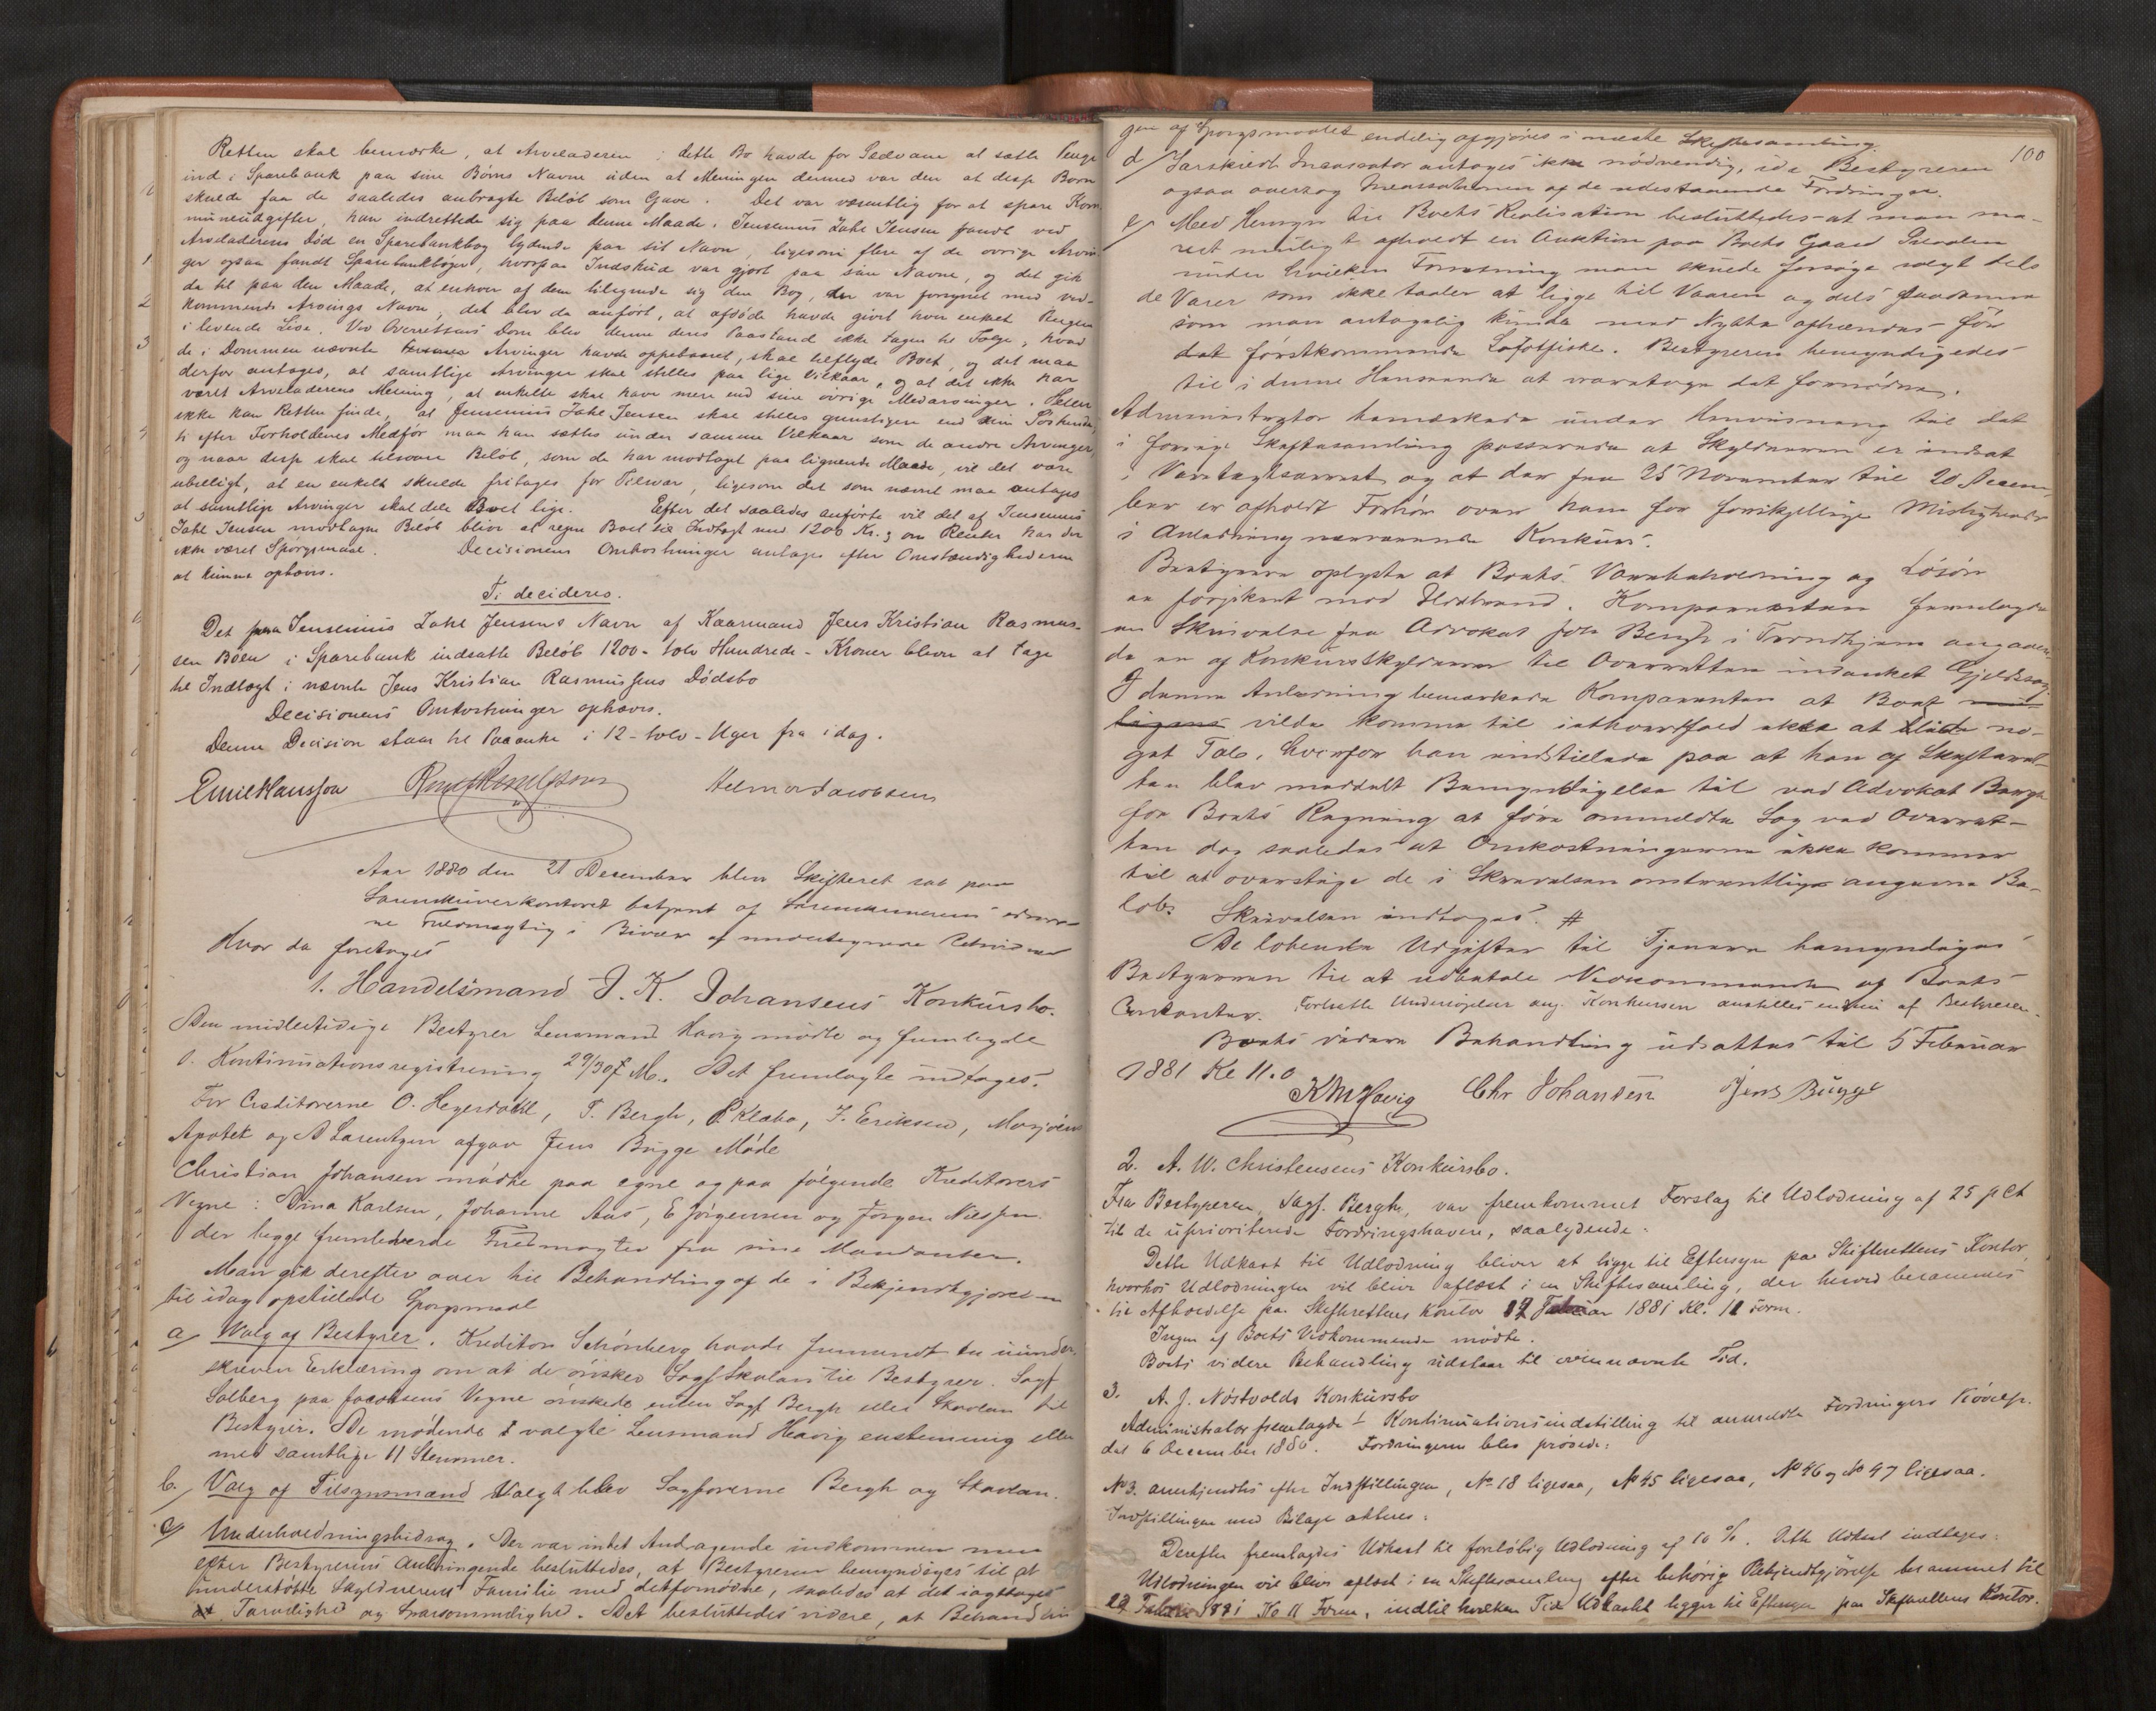 Retten skal bemærke, at Arveladeren i dette Bo havde for Sædvane at sætte Penge
ind i Sparebank paa sine Børns Navne uden at Meningen dermed var den at disse Børn
skulde faa de saaledes anbragte Beløb som Gave. Det var væsentlig for at spare Kom-
muneudgifter, han indrettede sig paa denne Maade. Jensenius Zahl Jensen fandt ved
Arveladerens Død en Sparebankbog lydende paa sit Navn, ligesom flere af de øvrige Arvin-
ger ogsaa fandt Sparebankbøger, hvorpaa Indskud var gjort paa sine Navne, og det gik
da til paa den Maade, at enhver af dem tilegnede sig den Bog, der var forsynet med ved-
kommende Arvings Navn, det blev da anført, at afdøde havde givet hver enkelt Bogen
i levende Live. Ved Overrettens Dom blev denne deres Paastand ikke tagen til Følge, hvad
de i Dommen nævnte Arvinger havde oppebaaret, skal tilflyde Boet, og det maa
derfor antages, at samtlige Arvinger skal stilles paa lige Vilkaar, og at det ikke har
været Arveladerens Mening, at enkelte skal have mere end sine øvrige Medarvinger. Heller
ikke kan Retten finde, at Jensenius Zahl Jensen skal stilles gunstigere end sine Søskende,
ti efter Forholdenes Medfør maa han sættes under samme Vilkaar som de andre Arvinger,
og naar disse skal tilsvare Beløb, som de har modtaget paa lignende Maade, vil det være
ubilligt, at en enkelt skulde fritages for Tilsvar, ligesom det som nævnt maa antages
at samtlige Arvinger skal dele Boet lige. Efter det saaledes anførte vil det af Jensenius
Zahl Jensen modtagne Beløb blive at regne Boet til Indtægt med 1200 Kr.; om Renter har der
ikke været Spørgsmaal. Decisionens Omkostninger antages efter Omstændighederne
at kunne ophæves.
Ti decideres.
Det paa Jensenius Zahl Jensens Navn af Kaarmand Jens Kristian Rasmus-
sen Bøen i Sparebank indsatte Beløb 1200 - tolv Hundrede - Kroner bliver at tage
til Indtægt i nævnte Jens Kristian Rasmussens Dødsbo
Decisionens Omkostninger ophæves.
Denne Decision staar til Paaanke i 12 - tolv - Uger fra idag.
Emil Hansson Helmer Jacobsen
Aar 1880 den 21 December blev Skifteret sat paa
Sorenskriverkontoret betjent af Sorenskriverens edsvor-
ne Fuldmægtig i Bivær af undertegnede Retsvidner
Hvor da foretoges
1. Handelsmand J. K. Johansens Konkursbo.
Den midlertidige Bestyrer Lensmand Havig mødte og fremlagde
1. Kontinuationsregistrering 29/30 f. M. Det fremlagte indtages.
For Creditorerne O. Heyerdahl, T. Bergh, P. Klæbo, J. Eriksen, Mosjøens
Apotek og A Lorentzen afgav Jens Bugge Møde
Christian Johansen mødte paa egne og paa følgende Kreditorers
Vegne: Dina Karlsen, Johanne Aas, E Jörgensen og Jörgen Nilssen.
der begge fremleverde Fuldmagter fra sine Mandanter.
Man gik derefter over til Behandling af de i Bekjendtgjørelsen
til idag opstillede Spørgsmaal
a/ Valg af Bestyrer. Kreditor Schönberg havde fremsendt en under-
skreven Erklæring om at de ønsker Sagf Skavlan til Bestyrer. Sagf
Solberg paa Jacobsens Vegne ønskede enten Sagf Bergh eller Skavlan til
Bestyrer. De mødende valgte Lensmand Havig enstemmig eller
med samtlige 11 Stemmer.
b./ Valg af Tilsynsmænd Valgt blev Sagførerne Bergh og Skavlan.
c/ Underholdningsbidrag. Der var intet Andragende indkommen men
efter Bestyrerens Anbringende besluttedes, at Bestyreren bemyndiges til at
understøtte Skyldnerens Familie med detfornødne, saaledes at det iagttages
Tarvelighed og Sparsommelighed. Det besluttedes videre, at Behandlin-
100
gen af Spørgsmaalet endelig afgjøres i næste Skiftesamling.
d/ Særskildt Incassator antoges ikke nødvendig, ida Bestyreren
ogsaa overtog Incassationen af de udestaaende Fordringer.
e/ Med Hensyn til Boets Realisation besluttedes at man sna-
rest muligt afholdt en Auktion paa Boets Gaard
under hvilken Forretning man skulde forsøge solgt dels
de Varer som ikke taaler at ligge til Vaaren og dels saadanne
som man antagelig kunde med Nytte afhændes før
det førstkommende Lofotfiske. Bestyreren bemyndigedes
til i denne Henseende at varetage det fornødne.
Administrator bemærkede under Henvisning til det
i forrige Skiftesamling passerede at Skyldneren er indsat
i Varetægtsarrest og at der fra 25 November til 20 Decem-
ber er afholdt Forhør over ham for forskjellige Misligheder
i Anledning nærværende Konkurs.
Bestyreren oplyste at Boets Varebeholdning og Løsøre
er forsikret mod Ildsbrand. Komparenten fremlagde
en Skrivelse fra Advokat Joh Bergh i Trondhjem angaaen-
de en af Konkursskyldneren til Overretten indanket Gjeldssag.
I denne Anledning bemærkede Komparenten at Boet
vilde komme til iethvertfald ikke at lide no-
get Tab, hvorfor han indstillede paa at han af Skifteret-
ten blev meddelt Bemyndigelse til ved Advokat Bergh
for Boets Regning at føre anmeldte Sag ved Overret-
ten dog saaledes at Omkostningerne ikke kommer
til at overstige de i Skrivelsen omtrentlige angivne Be-
løb. Skrivelsen indtages. #
De løbende Udgifter til Tjenere bemyndiges
Bestyreren til at udbetale Vedkommende af Boets
Contanter. Fortsatte Undersøgelser ang. Konkursen anstilles endnu af Bestyreren.
Boets videre Behandling udsattes til 5 Februar
1881 Kl 11.0
KMHavig Chr Johansen Jens Bugge
2. A. W. Christensens Konkursbo.
Fra Bestyreren, Sagf. Bergh, var fremkommet Forslag til Udlodning af 25 pCt
til de uprioriterede Fordringshavere, saalydende:
Dette Udkast til Udlodning bliver at ligge til Eftersyn paa Skifterettens Kontor,
hvorhos Udlodningen vil blive oplæst i en Skiftesamling, der herved berammes
til Afholdelse paa Skifterettens Kontor Februar 1881 Kl. 11 Form.
Ingen af Boets Vedkommende mødte.
Boets videre Behandling udstaar til ovennævnte Tid.
3. A. J. Nøstvolds Konkursbo
Administrator fremlagde 1 Kontinuationsindstilling til anmeldte Fordringers Prøvelse.
dat 6 December 1880. Fordringerne blev prøvede:
No 3. anerkjendtes efter Indstillingen, No 18 ligesaa, No 45 ligesaa, No 46 og No 47 ligesaa.
Indstillingen med Bilage akteres:
Derefter fremlagdes Udkast til foreløbig Udlodning af 10 %. Dette Udkast indtages:
Udlodningen vil blive oplæst i en Skiftesamling efter behørig Bekjendtgjørelse berammet til
Februar 1881 Kl 11 Form, indtil hvilken Tid Udkastet ligger til Eftersyn paa Skifterettens Kontor.